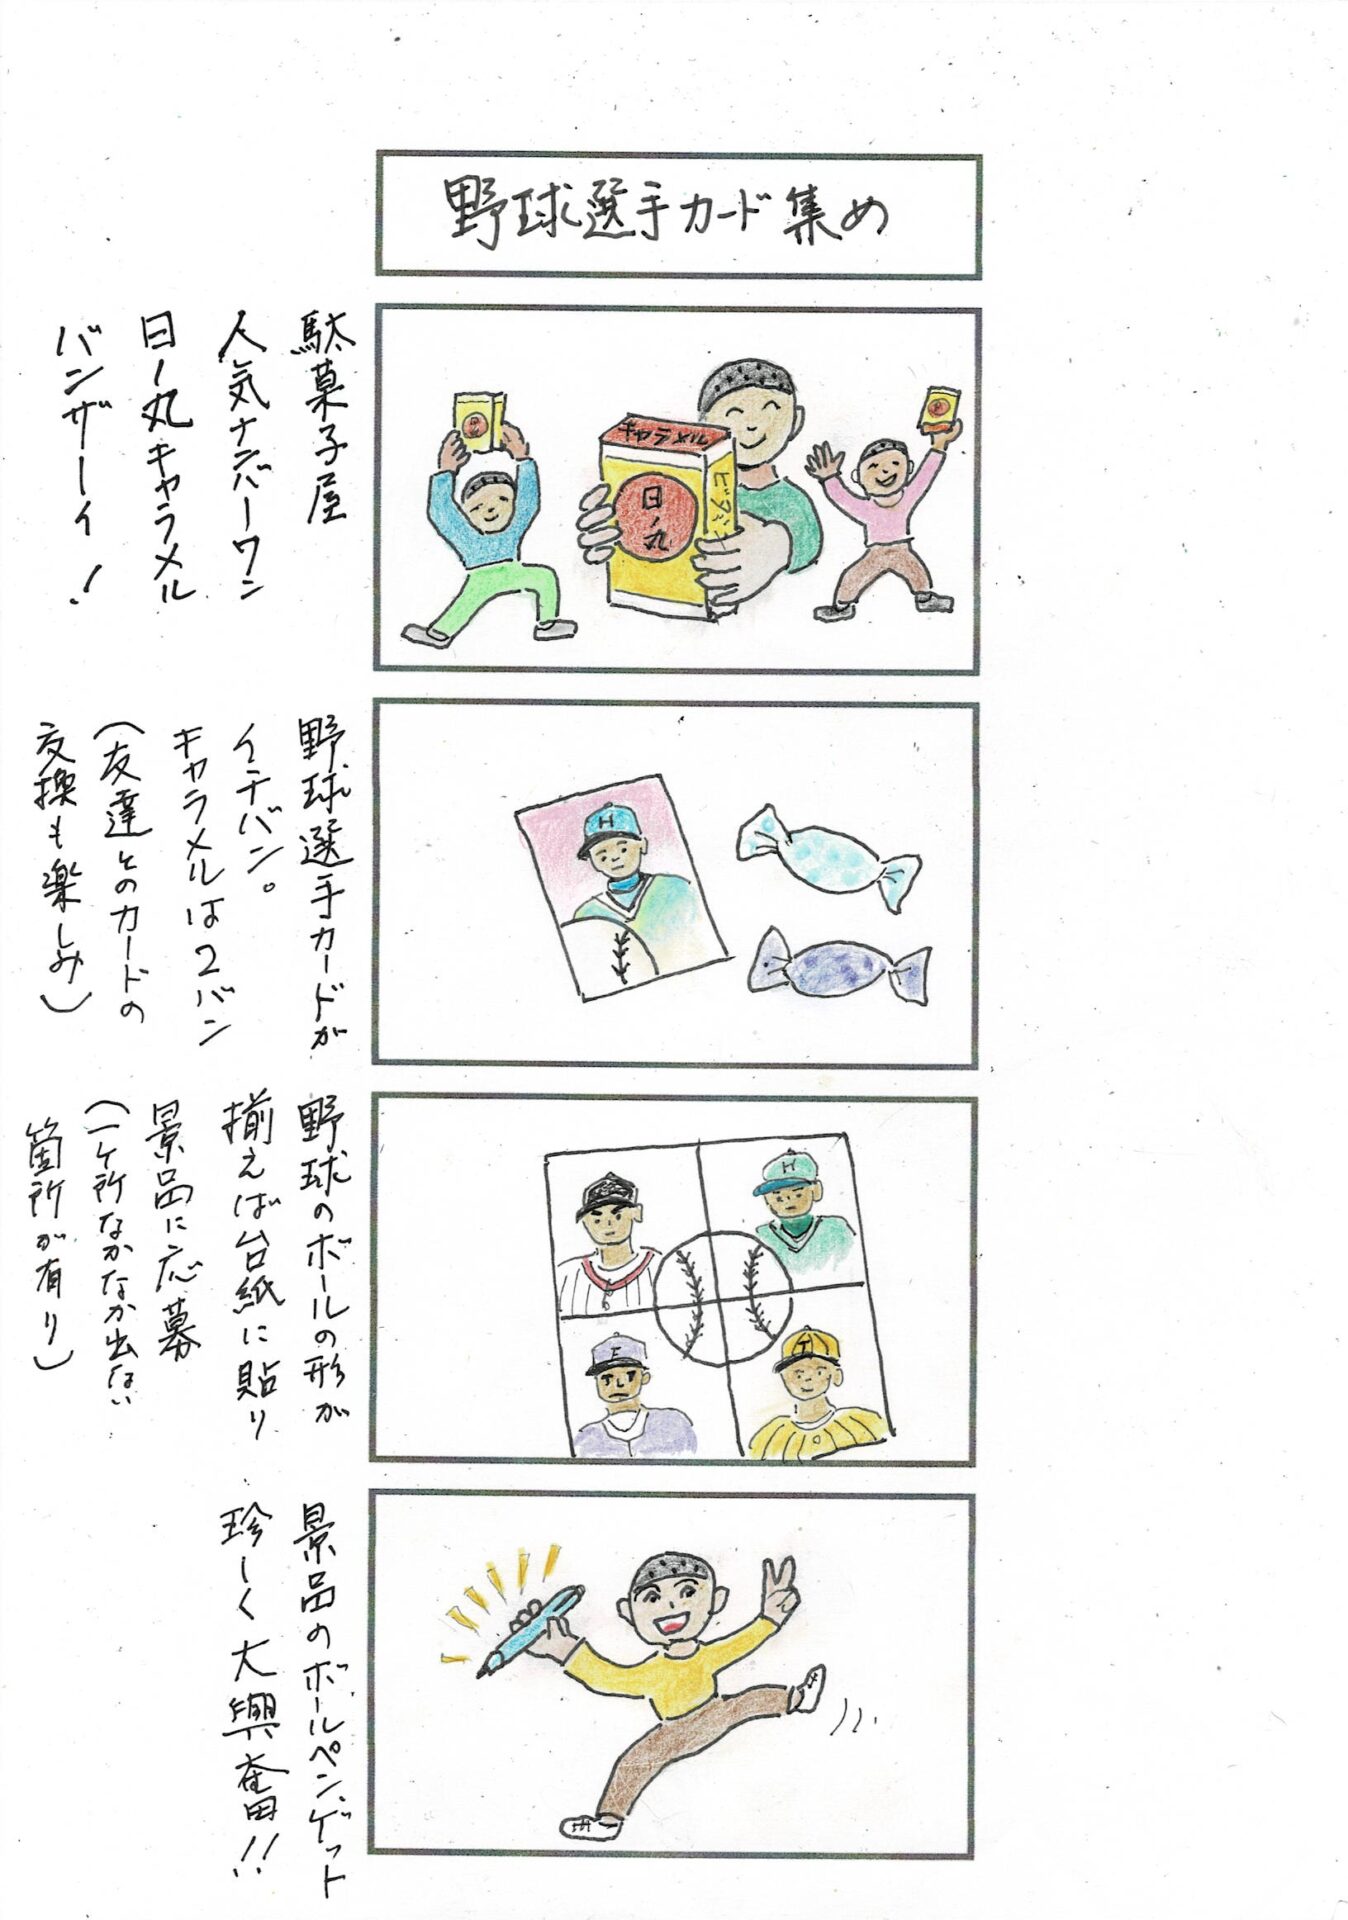 野球選手カード集め
駄菓子屋
人気ナンバーワン
日ノ丸キャラメル
バンザーイ!
日ノ丸
キャラメル
日ノ丸
日ノ丸
野球選手カードが
イチバン。
キャラメルは2バン
(友達とのカードの
交換も楽しみ)
H
野球のボールの形が
揃えば台紙に貼り
景品に応募
(一ケ所なかなか出ない
箇所が有り)
H
E
T
景品のボールペンゲット
珍しく大興奮!!